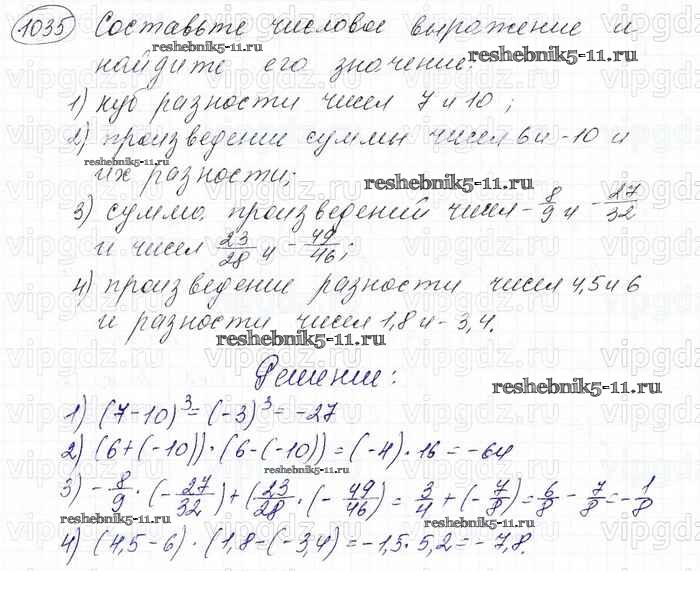 1035 Составьте числовое выражение и
reshebnik5-11.ru reshebnik5-11.ru
найдите его значение:
1) куб разности чисел 7 и 10;
2) произведение суммы чисел 6 и -10 и
reshebnik5-11.ru
их разности;
reshebnik5-11.ru
3) сумма произведений чисел -8/9 и -27/32
и чисел 23/28 и -49/46;
4) произведение разности чисел 4,5 и 6
и разности чисел 1,8 и -3,4.
reshebnik5-11.ru
Решение:
reshebnik5-11.ru
1) (7-10)³=(-3)³=-27
2) (6+(-10))·(6-(-10))=(-4)·16=-64
reshebnik5-11.ru
3) -8/9·(-27/32)+(23/28·(-49/46)=3/4+(-7/8)=6/8-7/8=-1/8
reshebnik5-11.ru reshebnik5-11.ru
4) (4,5-6)·(1,8-(-3,4)=-1,5·5,2=-7,8.